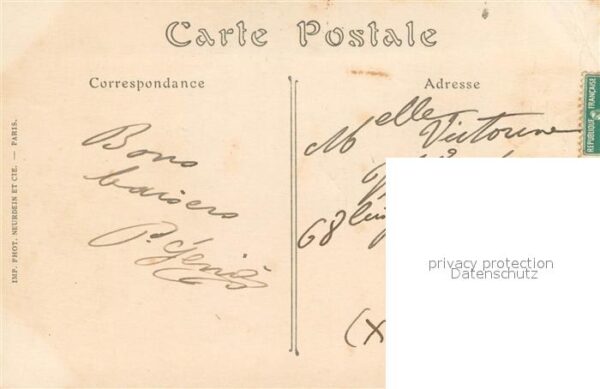 Carte Postale
Correspondance
Adresse
IMP. PHOT. NEURDEIN ET CIE. — PARIS.
REPUBLIQUE FRANÇAISE
Bons
baisers
Melle Victorine
68
(X
privacy protection
Datenschutz